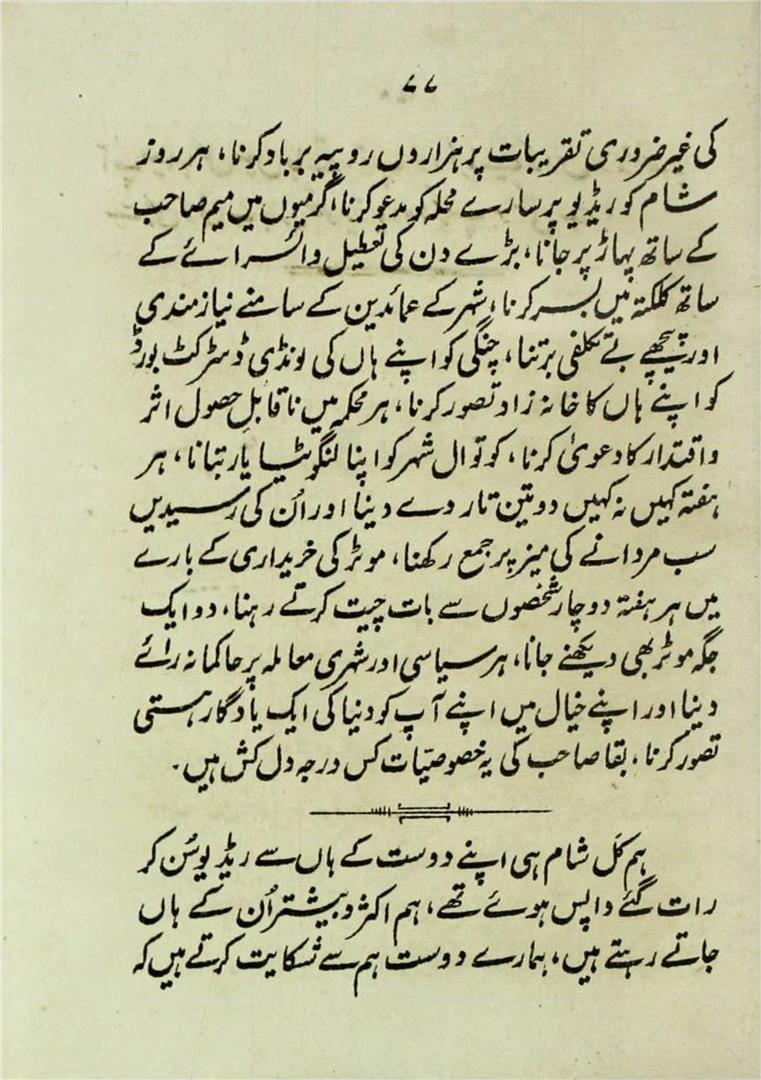 ۷۷
کی غیر ضروری تقریبات پر ہزاروں روپیہ برباد کرنا، ہر روز
شام کو ریڈیو پر سارے محلہ کو مدعو کرنا، گرمیوں میں میم صاحب
کے ساتھ پہاڑ پر جانا، بڑے دن کی تعطیل وائسرائے کے
ساتھ کلکتہ میں بسر کرنا، شہر کے عمائدین کے سامنے نیازمندی
اور پیچھے بے تکلفی برتنا، چنگی کو اپنے ہاں کی لونڈی ڈسٹرکٹ بورڈ
کو اپنے ہاں کا خانہ زاد تصور کرنا، ہر محکمہ میں ناقابلِ حصول اثر
واقتدار کا دعویٰ کرنا، کوتوال شہر کو اپنا لنگوٹیا یار بتانا، ہر
ہفتہ کہیں نہ کہیں دو تین تار دے دینا اور اُن کی رسیدیں
سب مردانے کی میز پر جمع رکھنا، موٹر کی خریداری کے بارے
میں ہر ہفتہ دوچار شخصوں سے بات چیت کرتے رہنا، دو ایک
جگہ موٹر بھی دیکھنے جانا، ہر سیاسی اور شہری معاملہ پر حاکمانہ رائے
دینا اور اپنے خیال میں اپنے آپ کو دنیا کی ایک یادگار ہستی
تصور کرنا، بقا صاحب کی یہ خصوصیّات کس درجہ دل کش ہیں۔
ہم کل شام ہی اپنے دوست کے ہاں سے ریڈیو سُن کر
رات گئے واپس ہوئے تھے، ہم اکثر و بیشتر اُن کے ہاں
جاتے رہتے ہیں، ہمارے دوست ہم سے شکایت کرتے ہیں کہ